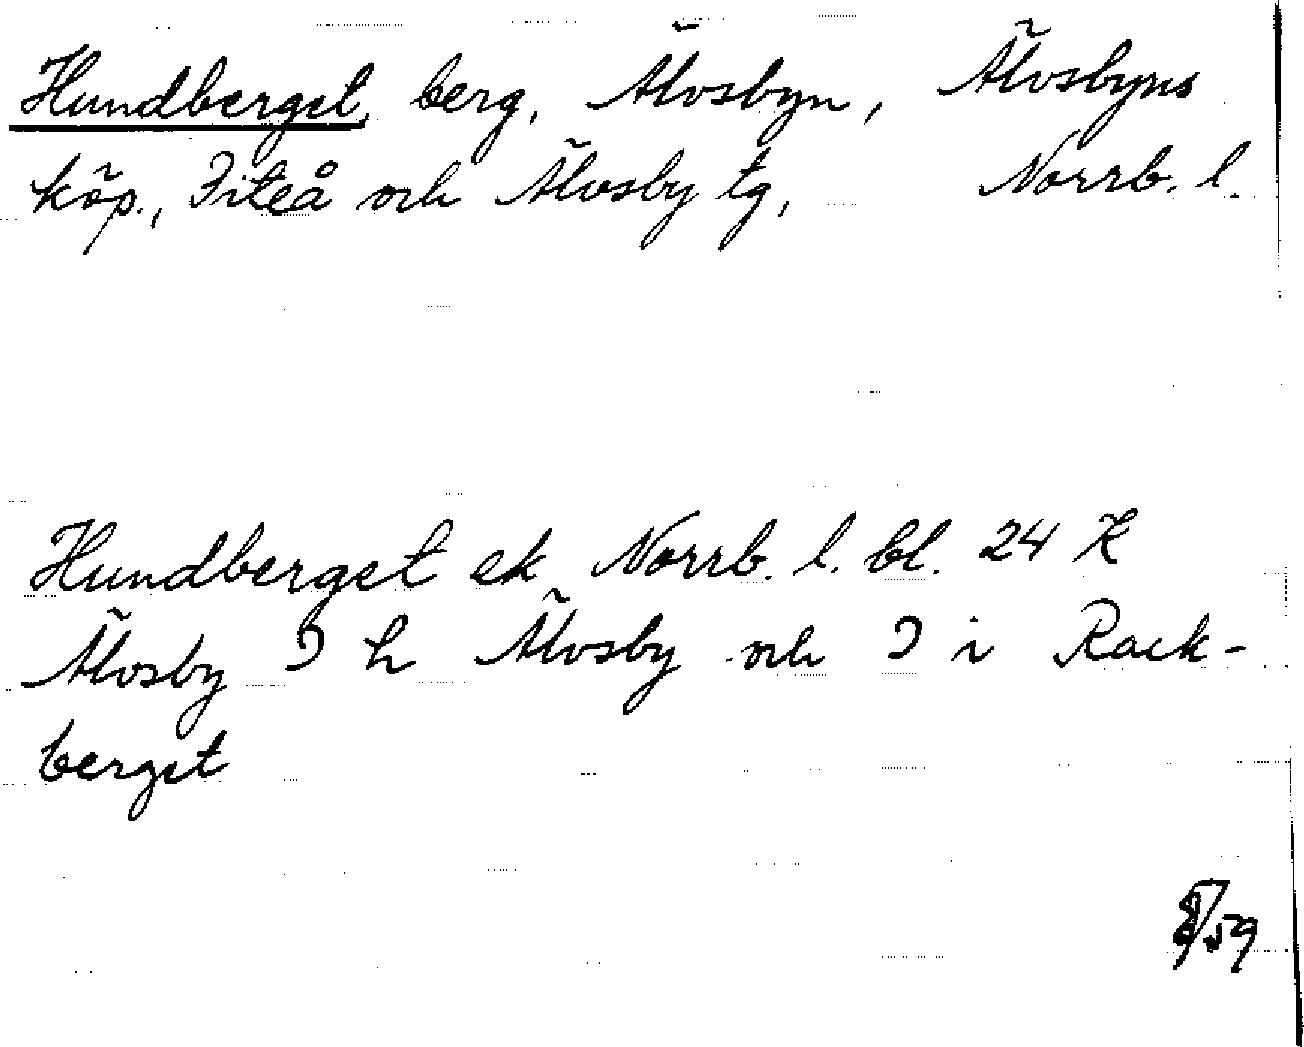 Hundberget, berg, Älvsbyn, Älvsbyns
köp., Piteå och Älvsby tg, Norrb. l.
Hundberget ek Norrb. l. bl. 24 K
Älvsby J h Älvsby och J i Rack-
berget